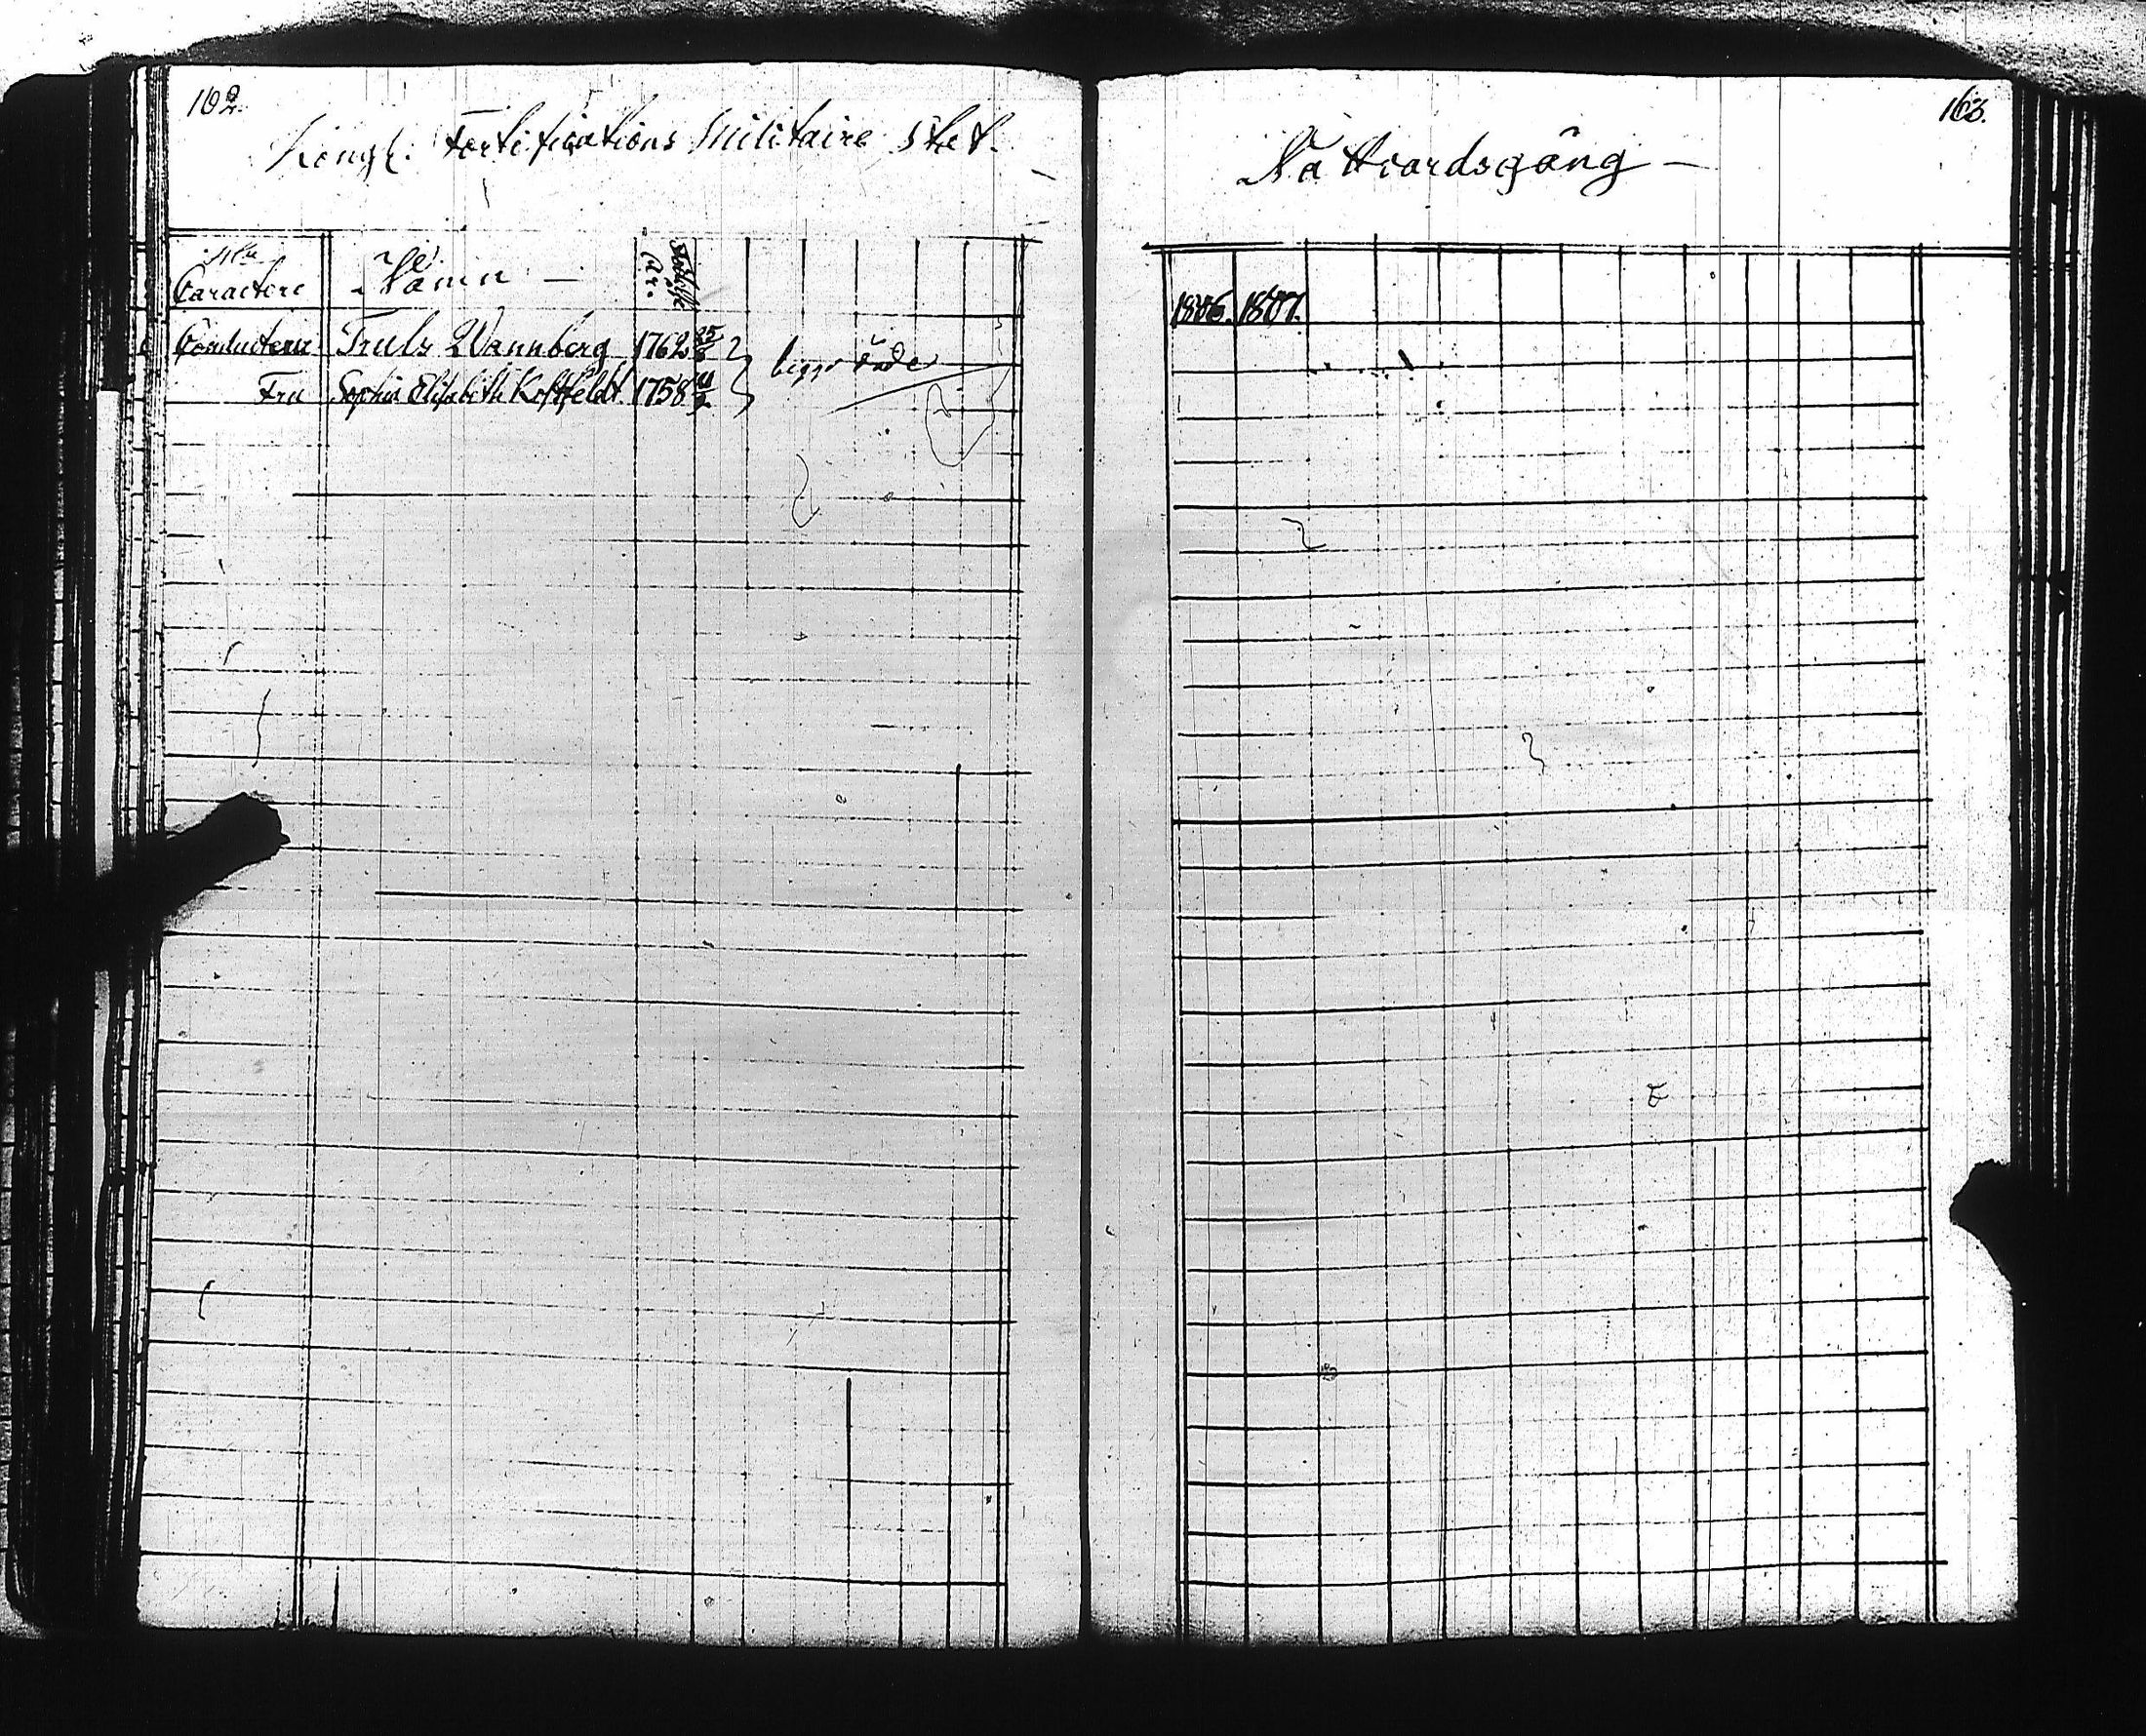 162.
Kongl. Fortifications Militaire Stat.
Caractere
Namn —
Födelse
År.
Conducteur Truls Wannberg 1762 25/8
begge döde
Fru Sophia Elisabeth Koftfeldt. 1758
163.
Nattvardsgång —
1806. 1807.